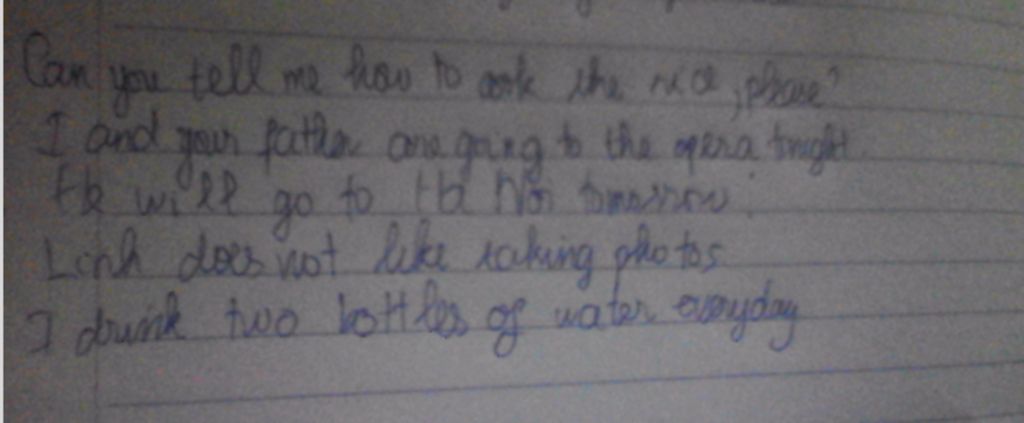 Can you tell me how to cook the rice, please?
I and your father are going to the opera tonight.
He will go to Ha Noi tomorrow.
Linh does not like taking photos
I drink two bottles of water everyday